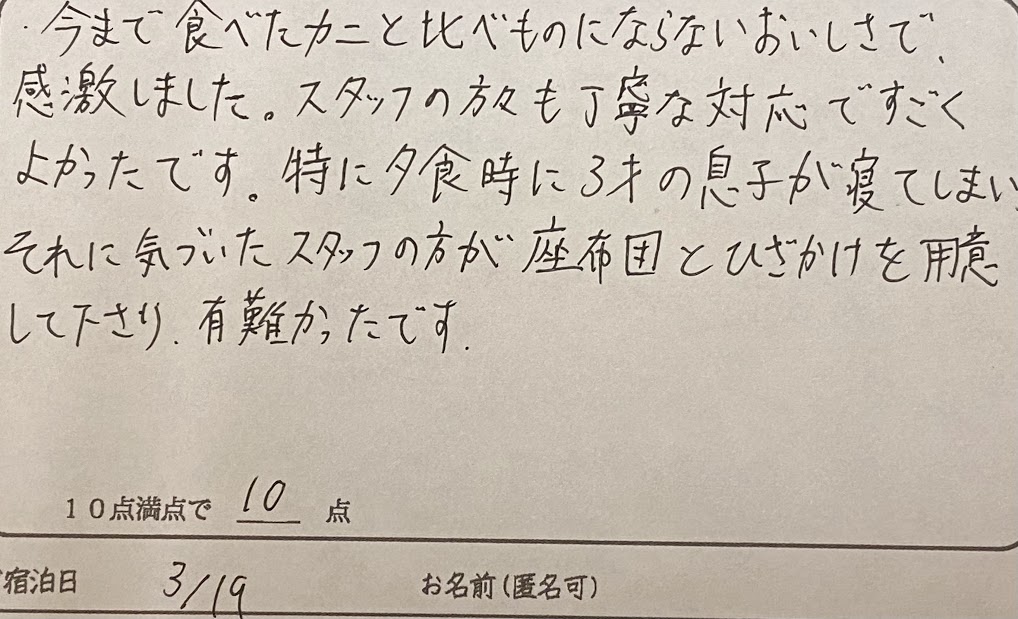 ・今まで食べたカニと比べものにならないおいしさで、
感激しました。スタッフの方々も丁寧な対応ですごく
よかったです。特に夕食時に3才の息子が寝てしまい
それに気づいたスタッフの方が座布団とひざかけを用意
して下さり、有難かったです。
10点満点で 10 点
宿泊日 3/19 お名前(匿名可)